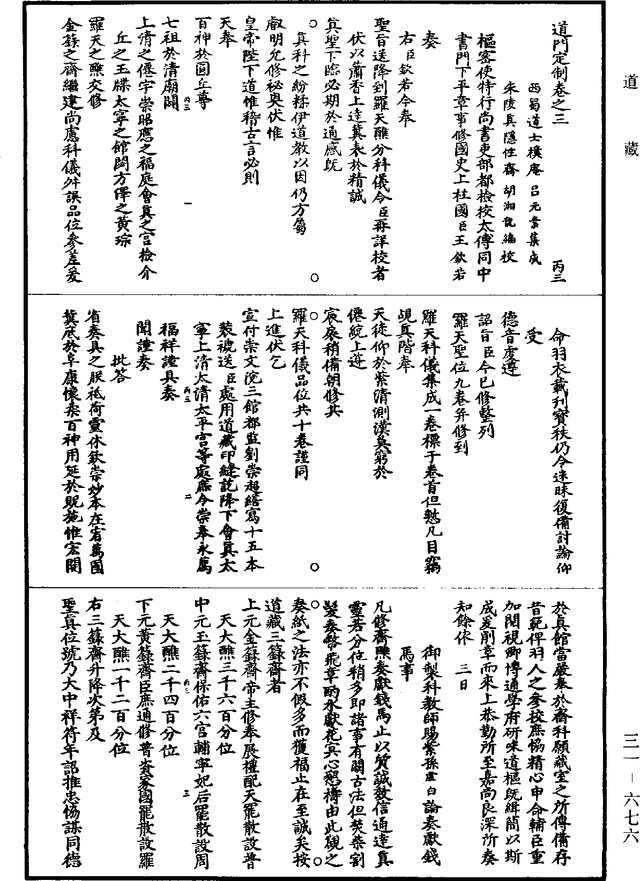 道藏
道門定制卷之三 丙三
西蜀道士樸庵呂元素集成
朱陵真隱性齋胡湘龍編校
樞密使特行尚書吏部都檢校太傅同中
書門下平章事修國史上柱國臣王欽若
奏
右臣欽若今奉
聖旨送降到羅天醮分科儀令臣再詳校者
伏以蕭香上達冀表於精誠
真聖下臨必期於通感旣
真科之紛糅伊道敎以因仍方屬
叡明允修祕奧伏惟
皇帝陛下道惟稽古言必則
天奉
百神於圜丘尊
七祖於清廟闢
上清之僊宇崇昭應之福庭會真之宮檢介
丘之玉牒太寧之館闢方澤之黃琮
羅天之醮交修
金籙之齋繼建尚慮科儀舛誤品位參差爰
命羽衣載刊寶秩仍令迷昧復備討論仰
受
德音虔遵
詔旨臣今已修整列
羅天聖位九卷幷修到
羅天科儀集成一卷標于卷首但愁凡目竊
覘真階奉
天徒仰於紫清測漢莫窮於
僊統上遵
宸扆稍備朝修其
羅天科儀品位共十卷謹同
上進伏乞
宣付崇文院三館都監劉崇超繕寫十五本
裝褫送臣處用道藏印縫訖降下會真太
寧上清太清太平宮等處庶令崇奉永萬
福祥謹具奏
聞謹奏
批荅
省奏具之朕祗荷靈休欽崇妙本在宥萬國
冀底於阜康懷柔百神用延於貺施惟宏闢
於真館當嚴奉於齋科願藏室之所傳備存
昔範俾羽人之參校庶恊精心申命輔臣重
加閱視卿博通學府研味道樞旣緝簡以斯
成爰削章而來上恭勤所至嘉尚良深所奏
知餘依 三日
御製科教師賜紫孫虛白論奏獻錢
馬事
凡修齋醮奏獻錢馬止以質誠效信通達真
靈若分位稍多即諸事有闕古法但焚柴割
髮奏幣飛章酌水獻花冥心懇禱由此觀之
奏紙之法亦不假多而獲福止在至誠矣按
道藏三籙齋者
上元金籙齋帝主修奉展禮配天罷散設普
天大醮三千六百分位
中元玉籙齋保佑六宮輔寧妃后罷散設周
天大醮二千四百分位
下元黃籙齋臣庶通修普資家國罷散設羅
天大醮一千二百分位
右三籙齋升降次第及
聖真位號乃大中祥符年詔推忠協謀同德
三一－六七六